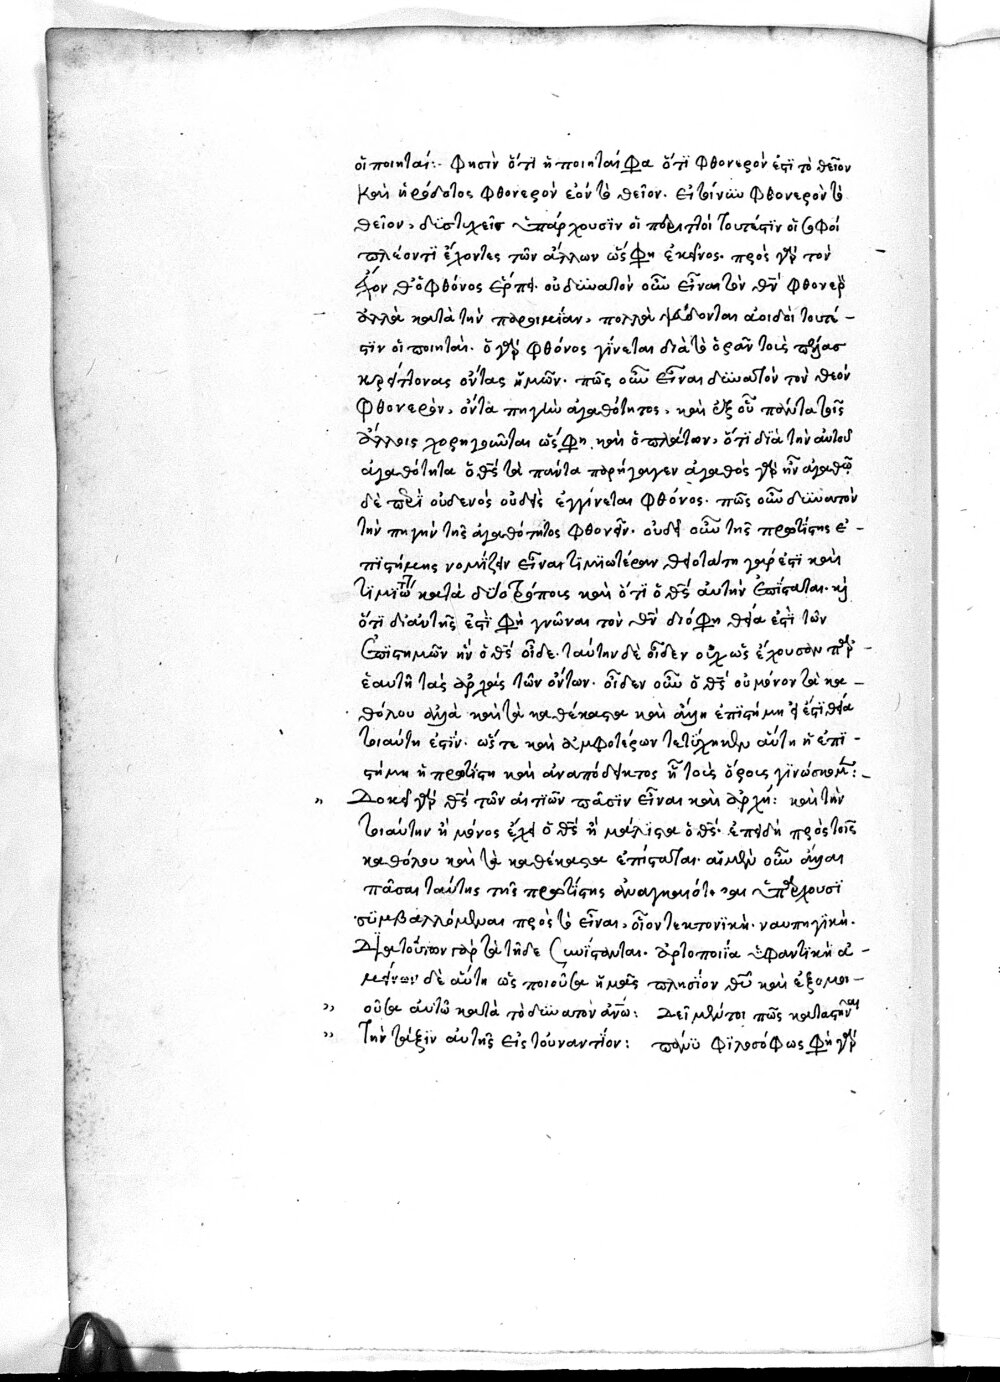 οἱ ποιηταί:· φησὶν ὅτι ἡ ποιηταί φα ὅτι φθονερὸν ἐστι τὸ θεῖον
καὶ ἡρόδοτος φθονερὸν ἐὸν τὸ θεῖον. εἰ τοίνυν φθονερὸν τὸ
θεῖον, δυστυχεῖς ὑπάρχουσιν οἱ περιττοὶ τουτέστιν οἱ σοφοὶ
πλέον τι ἔχοντες τῶν ἄλλων ὥς φη ἐκεῖνος. πρὸς γὰρ τὸν
ἔχον θ' ὁ φθόνος ἕρπει. οὐ δυνατὸν οὖν εἶναι τὸν θν φθονερὸν
ἀλλὰ κατὰ τὴν παροιμίαν, πολλὰ ψεύδονται ἀοιδοὶ τουτέ-
στιν οἱ ποιηταί. ὁ γὰρ φθόνος γίνεται διὰ τὸ ὁρᾶν τοὺς πέλας
κρείττονας ὄντας ἡμῶν. πῶς οὖν εἶναι δυνατὸν τὸν θεὸν
φθονερὸν, ὄντα πηγὴν ἀγαθότητος, καὶ ἐξ οὗ πάντα τοῖς
ἄλλοις χορηγοῦνται ὥς φη καὶ ὁ πλάτων, ὅτι διὰ τὴν αὐτοῦ
ἀγαθότητα ὁ θς τὰ πάντα παρήγαγεν ἀγαθὸς γὰρ ἦν ἀγαθῷ
δὲ περὶ οὐδενὸς οὐδεὶς ἐγγίνεται φθόνος. πῶς οὖν δυνατὸν
τὴν πηγὴν τῆς ἀγαθότητος φθονεῖν. οὐδὲ οὖν τῆς πρώτης ἐ-
πιστήμης νομίζειν εἶναι τιμιωτέραν θειοτάτη γάρ ἐστι καὶ
τιμιωτ κατὰ δύο τρόπους καὶ ὅτι ὁ θς αὐτὴν ἐπίσταται. καὶ
ὅτι δι αὐτῆς ἐστὶ φη γνῶναι τὸν θν διό φη θεία ἐστὶ τῶν
ἐπιστημῶν ἣν ὁ θς οἶδε. ταύτην δὲ οἶδεν οὐχ ὡς ἔχουσαν παρ
ἑαυτῆ τὰς ἀρχὰς τῶν ὄντων. οἶδεν οὖν ὁ θς οὐ μόνον τὰ κα-
θόλου ἀλλὰ καὶ τὰ καθέκαστα καὶ ἄλλη ἐπιστήμη εἴ ἐστι θεία
τοιαύτη ἐστίν. ὥστε καὶ ἀμφοτέρων τετύχηκεν αὕτη ἡ ἐπι-
στήμη ἡ πρώτη καὶ ἀναπόδεικτος ᾗ τοὺς ὅρους γινώσκομεν:-
» Δοκεῖ γὰρ θς τῶν αἰτιῶν πᾶσιν εἶναι καὶ ἀρχή: καὶ τὴν
τοιαύτην ἢ μόνος ἔχει ὁ θς ἢ μάλιστα ὁ θς. ἐπειδὴ πρὸς τοῖς
καθόλου καὶ τὰ καθέκαστα ἐπίσταται. αἱ μὲν οὖν ἄλλαι
πᾶσαι ταύτης τῆς πρώτης ἀναγκαιότεραι ὑπάρχουσι
συμβαλλόμεναι πρὸς τὸ εἶναι, οἷον τεκτονική. ναυπηγική.
Διὰ τούτων γὰρ τὰ τῆδε συνίστανται. ἀρτοποιία ὑφαντική ἀ-
μείνων δὲ αὕτη ὡς ποιοῦσα ἡμᾶς πλησίον θυ καὶ ἐξομοι-
» οῦσα αὐτῶ κατὰ τὸ δυνατὸν ἀνω: Δεῖ μέντοι πῶς καταστῆναι
» τὴν τάξιν αὐτῆς εἰς τοὐναντίον: πάνυ φιλοσόφως φη γὰρ